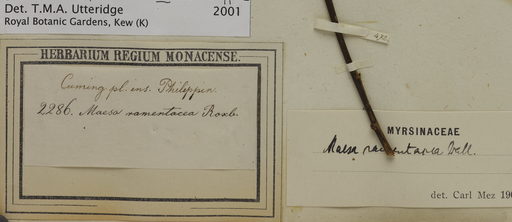 Det. T.M.A. Utteridge 2001
Royal Botanic Gardens, Kew (K)
HERBARIUM REGIUM MONACENSE.
Cuming. pl. ins. Philippin.
2286. Maesa ramentacea Roxb.
MYRSINACEAE
Maesa ramentacea Wall.
det. Carl Mez